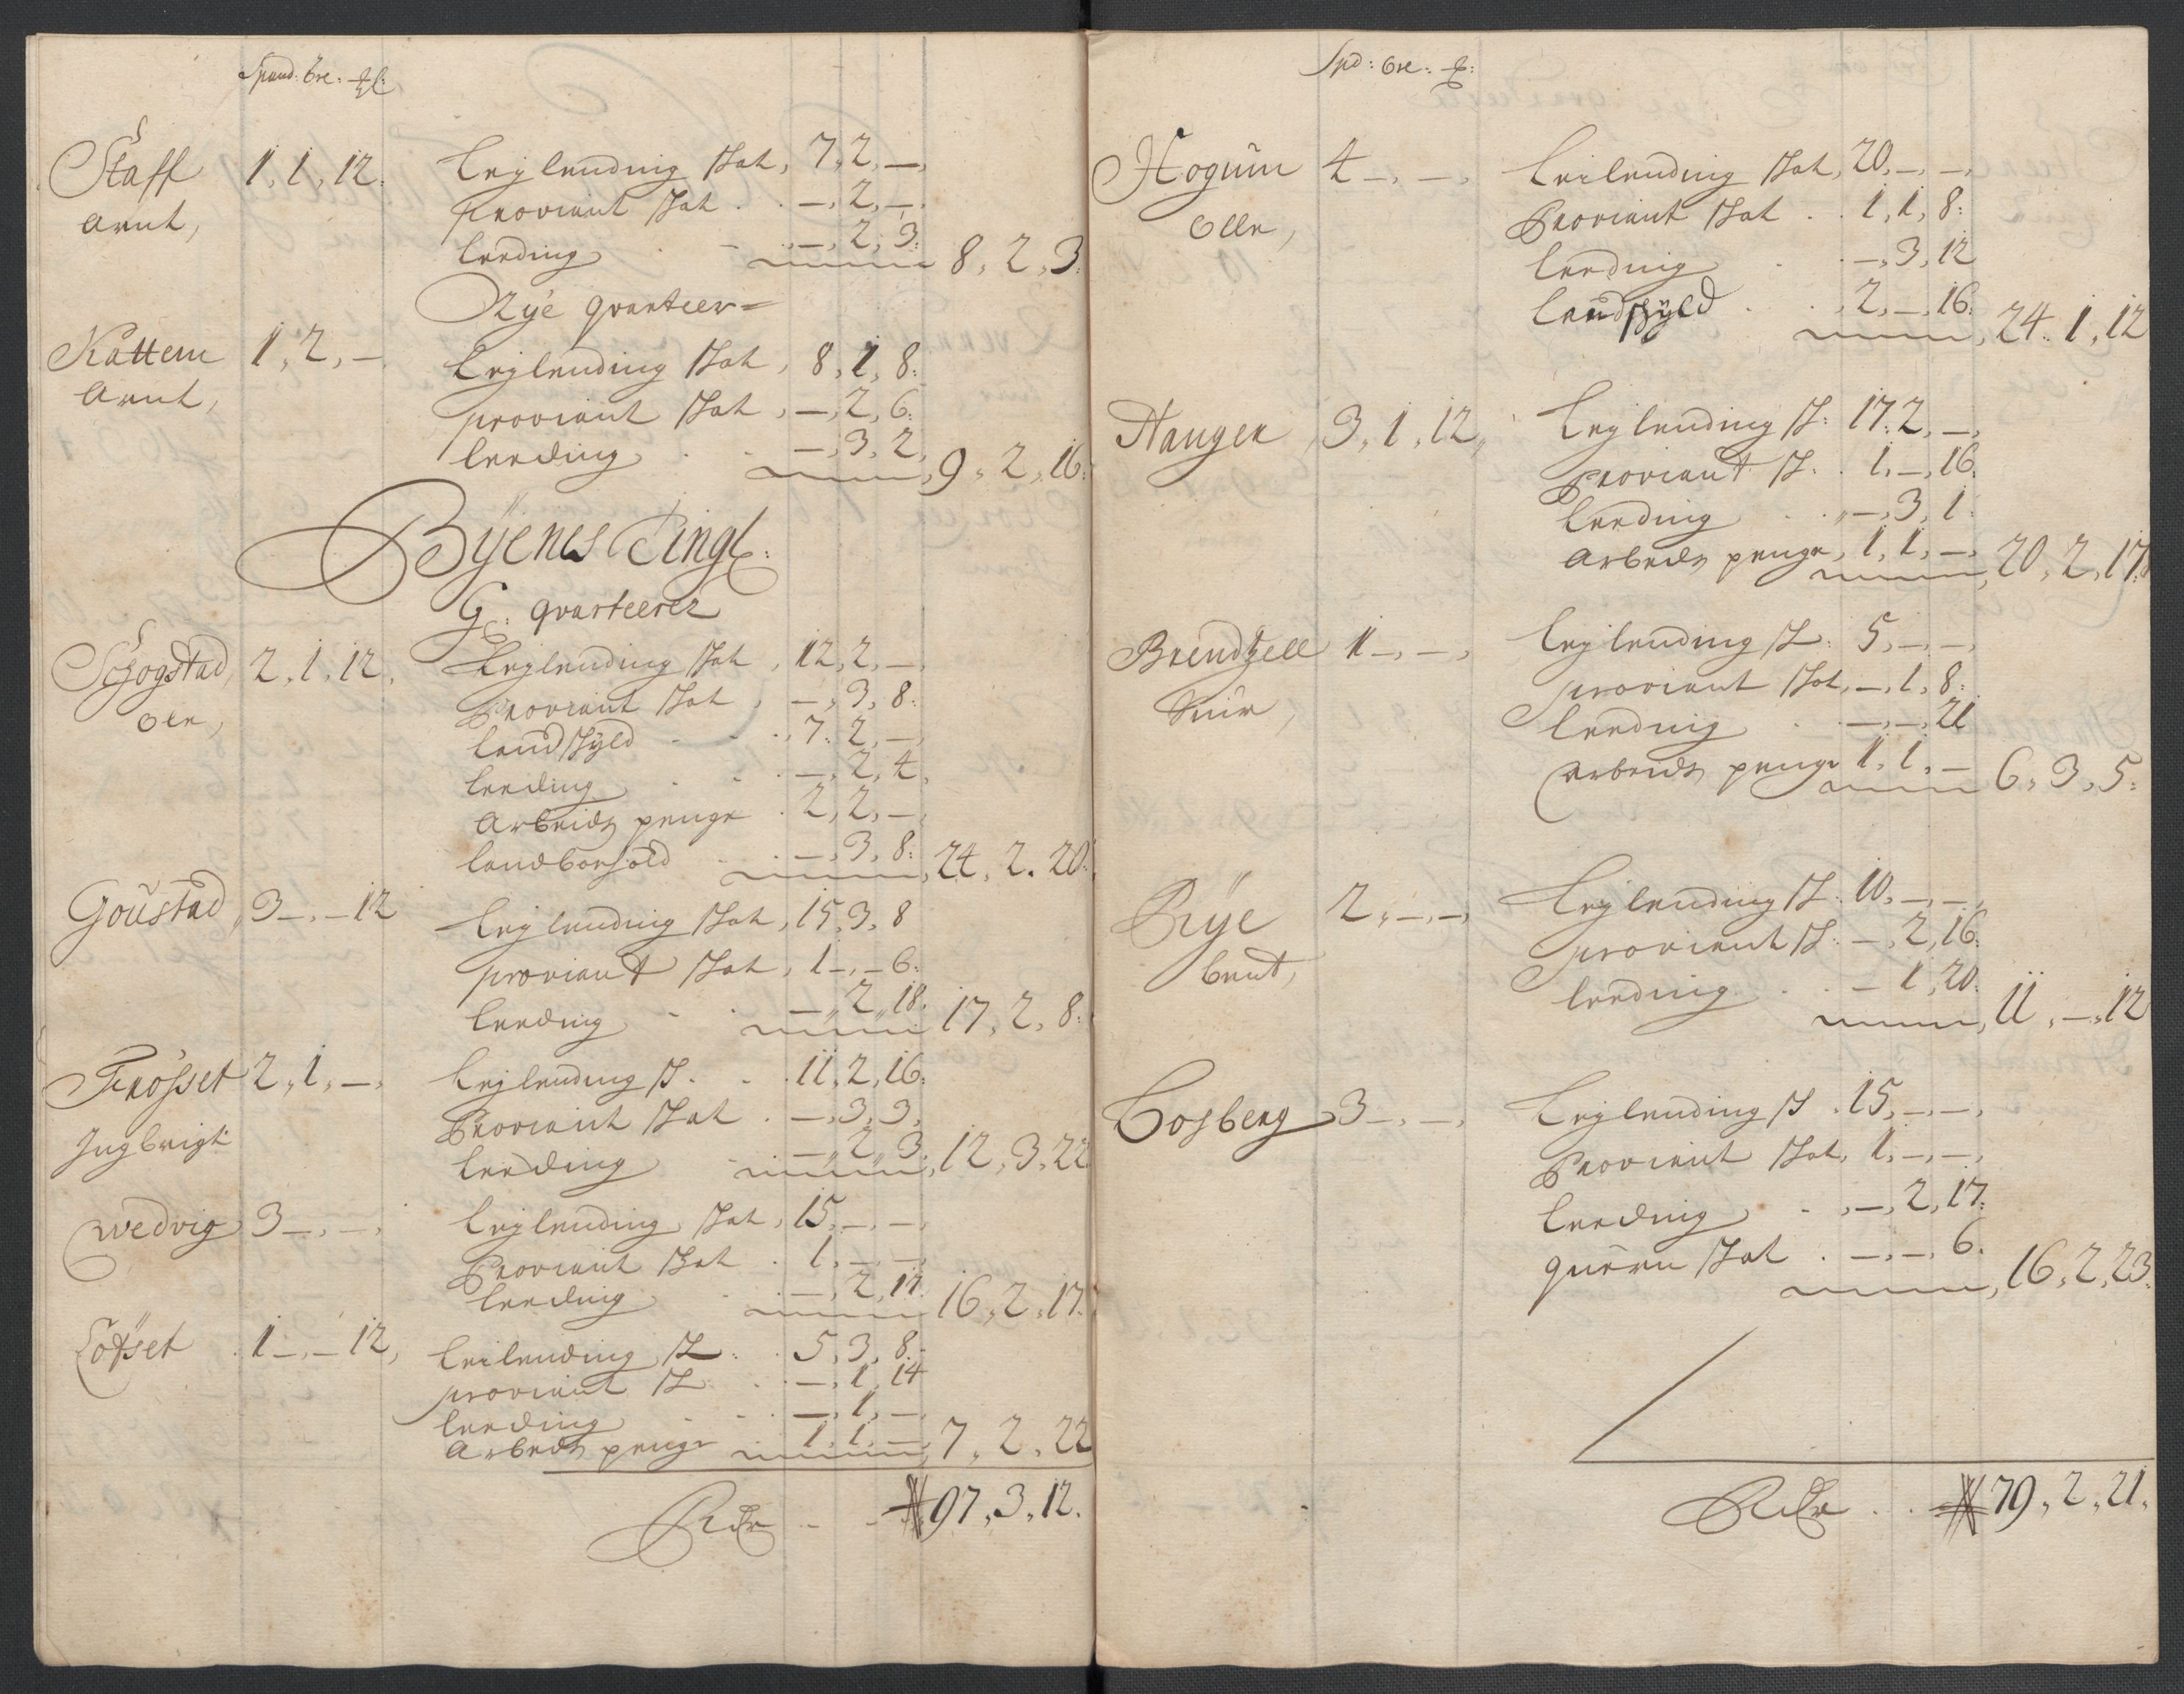 Spand. öre. ℔:
Staff 1, 1, 12. Leylending Skat, 7, 2, –,
Arnt, proviant Skat . . –, 2, –.
Leeding . – . –, 2, 3: 8, 2, 3.
Rye qvarteer=
Kattem 1, 2, – Leylending Skat, 8, 1, 8:
Arnt, proviant Skat, –, 2, 6:
Leeding . . –, 3, 2, 9, 2, 16:
Byenes Tingl:
G: qvarteerer
Schogstad, 2, 1, 12, Leylending Skat, 12, 2, –,
Ole, Proviant Skat, –, 3, 8:
Landskyld - - . 7, 2, –,
Leeding . - . –, 2, 4,
Arbeids penge . 2, 2, –,
Landbonhold . –, 3, 8: 24, 2. 20:
Goustad, 3 –, – 12 Leylending Skat, 15, 3, 8
proviant Skat, 1 –, – 6:
Leeding - . –, 2, 18. 17, 2, 8:
Frösset 2, 1, –, Leylending S. . . 11, 2, 16:
Ingbrigt Proviant Skat . –, 3, 3,
Leeding - –, 2, 3, 12, 3, 22
Wedvig 3 –, –, Leylending Skat, 15, –, –,
Proviant Skat . 1, –, –,
Leeding . –, 2, 17. 16, 2, 17.
Lofset . 1 –, – 12, Leilending Sk: . 5, 3, 8:
proviant Sk . –, 1, 14
Leeding - - . –, 1, –,
Arbeids penge . 1, 1, –, 7, 2, 22
Rdr - - 97, 3, 12.
Spd: öre: ℔:
Hogum 4 –, –, Leilending Skat, 20, –, –,
Olle, Proviant Skat . . 1, 1, 8:
Leeding . –, 3, 12
Landskyld . . 2, –, 16: 24. 1, 12
Hangen 3, 1, 12, Leylending S: 17. 2, –,
Proviant S. . 1, –, 16.
Leeding . . –, 3, 1.
Arbeids penge, 1, 1, –, 20, 2, 17.
Brendsell 1 –, –, Leylending S: 5, –, –,
Siur, proviant Skat, –, 1, 8:
Leeding . –, –, 21
Arbeids penge 1, 1, – 6, 3, 5:
Rye 2, –, –, Leylending S: 10, –, –,
bent, proviant S: –, 2, 16:
Leeding . . – 1, 20. 11, –, 12
Losberg 3 –, –, Leylending S . 15, –, –,
Proviant Skat, 1, –, –,
Leeding . –, 2, 17:
quern Skat . –, –, 6. 16, 2, 23.
Rdr . . 79, 2, 21.